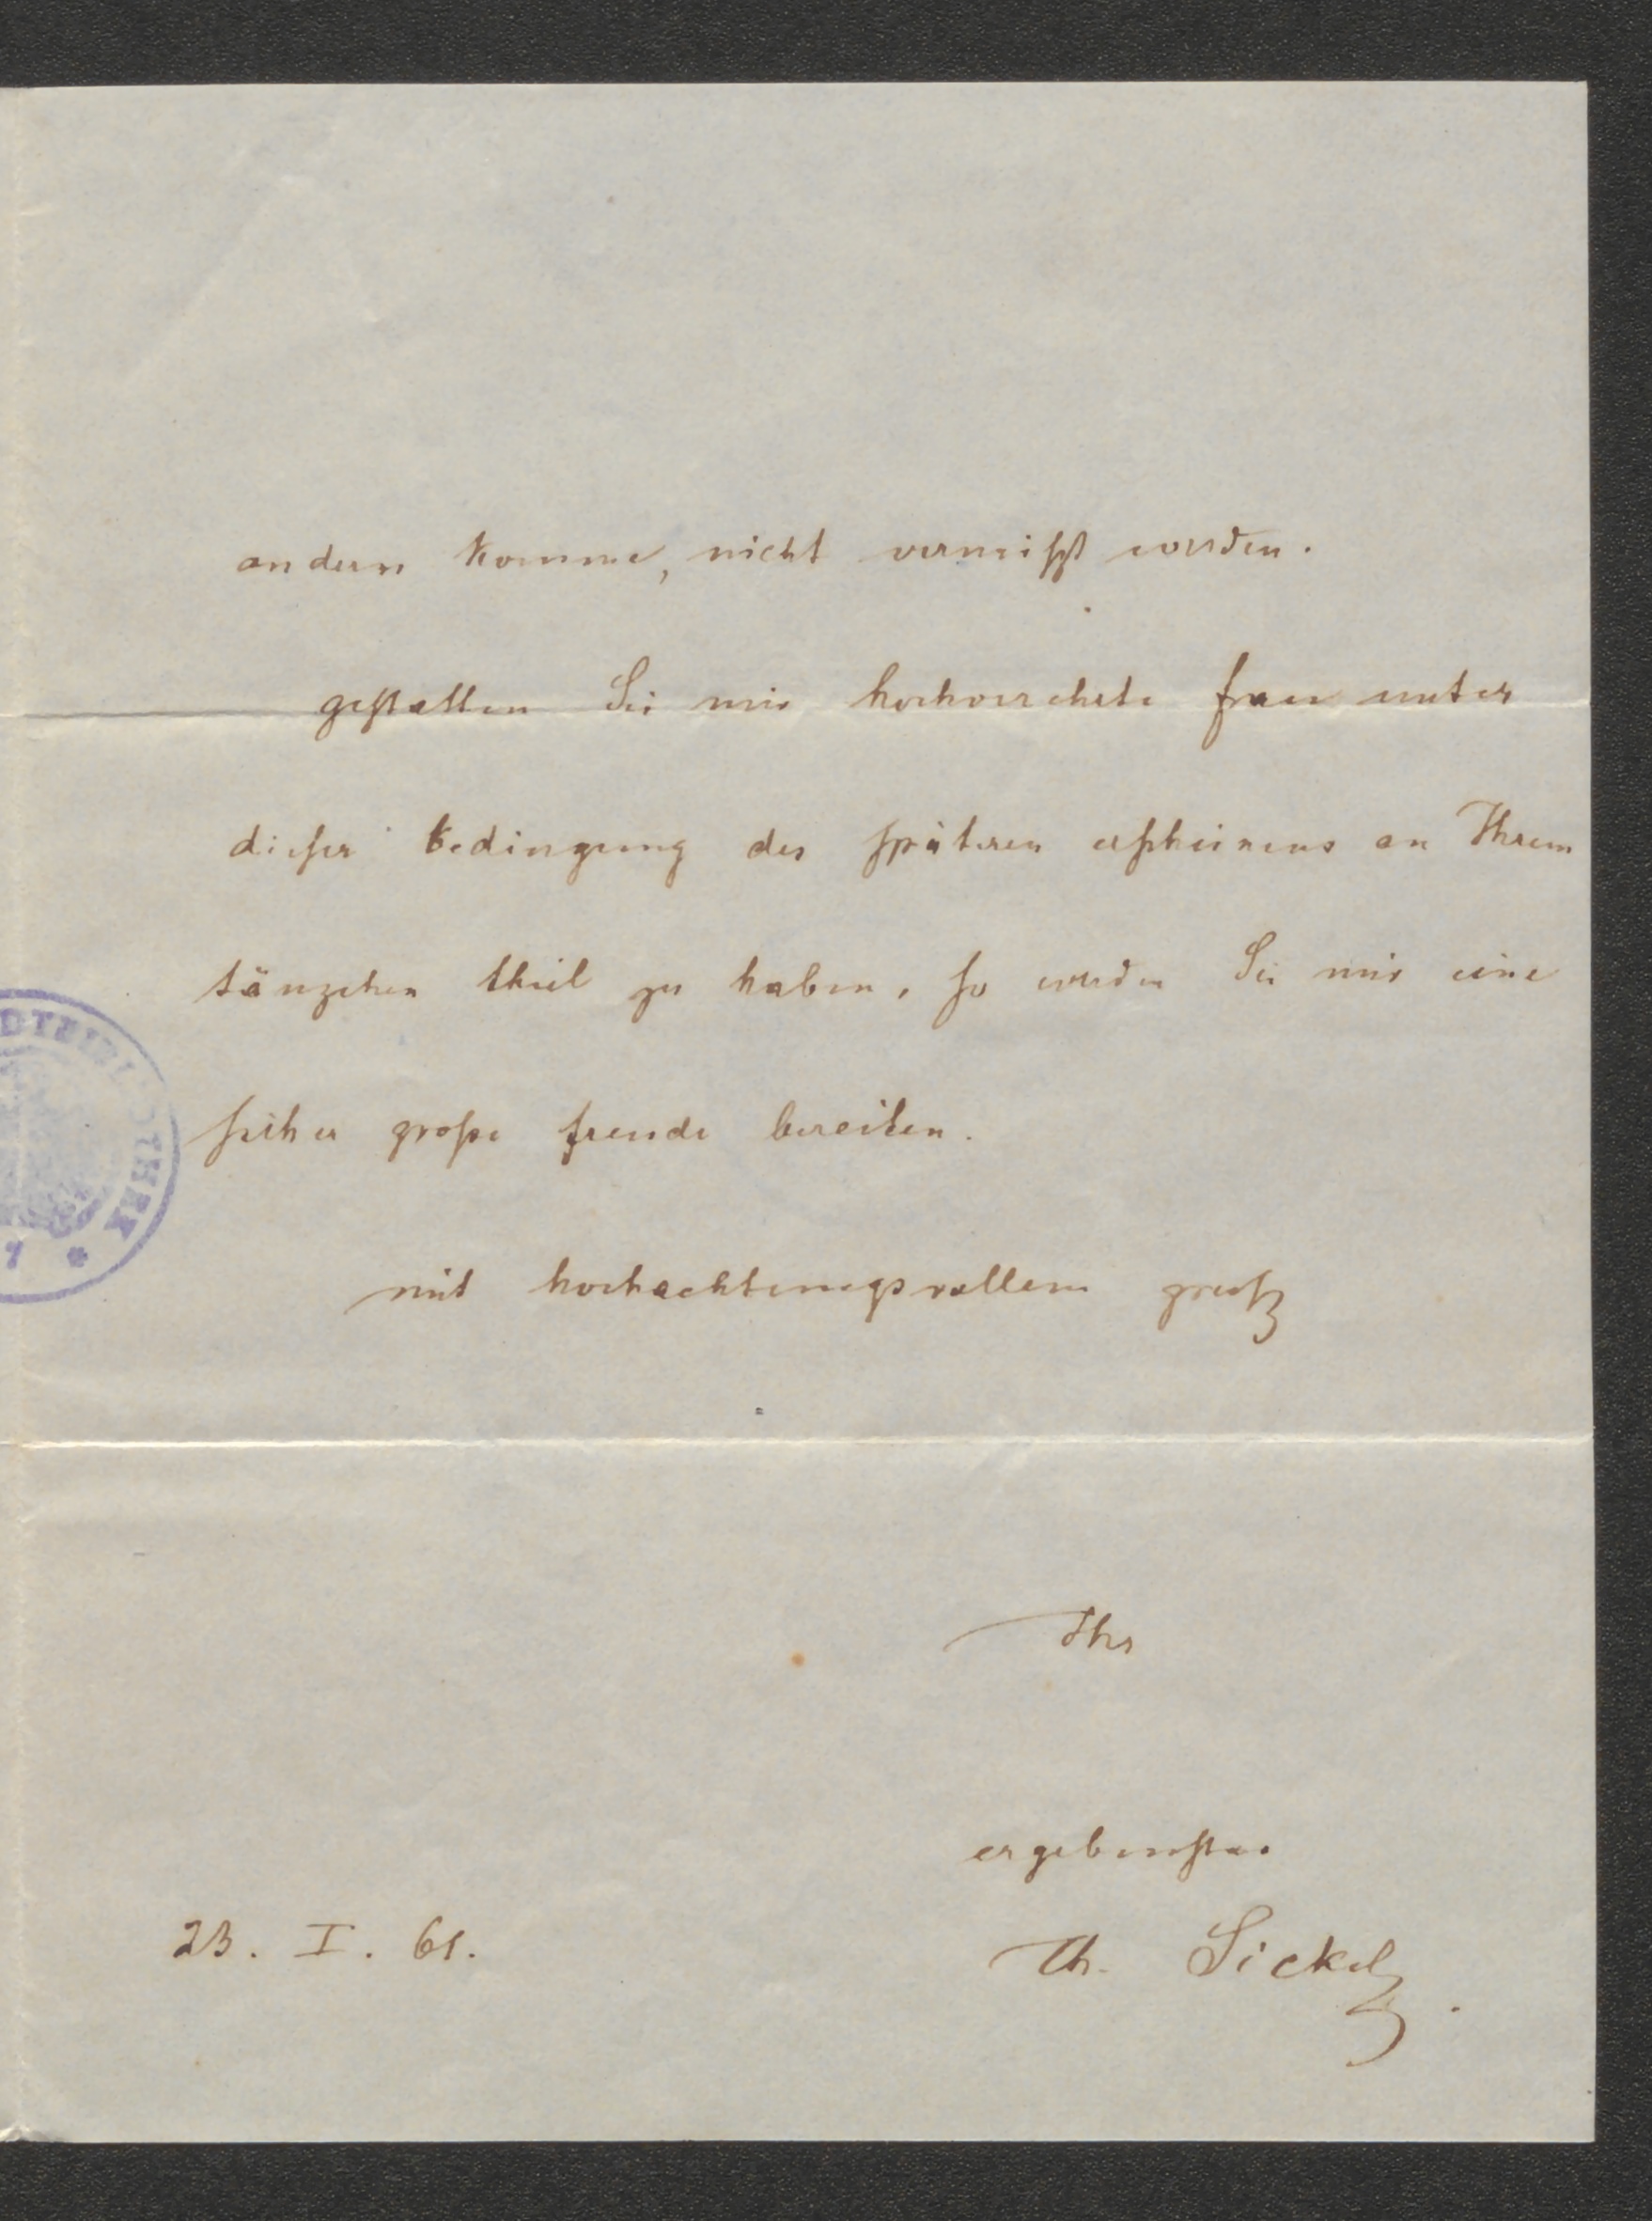 andern komme, nicht vermißt werden.
gestatten Sie mir hochverehrte frau unter
dieser bedingung des späteren erscheinens an Ihrem
tänzchen theil zu haben, so werden Sie mir eine
sicher große freude bereiten.
mit hochachtungsvollem gruß
Ihr
ergebenster
23. I. 61.
Th. Sickel.